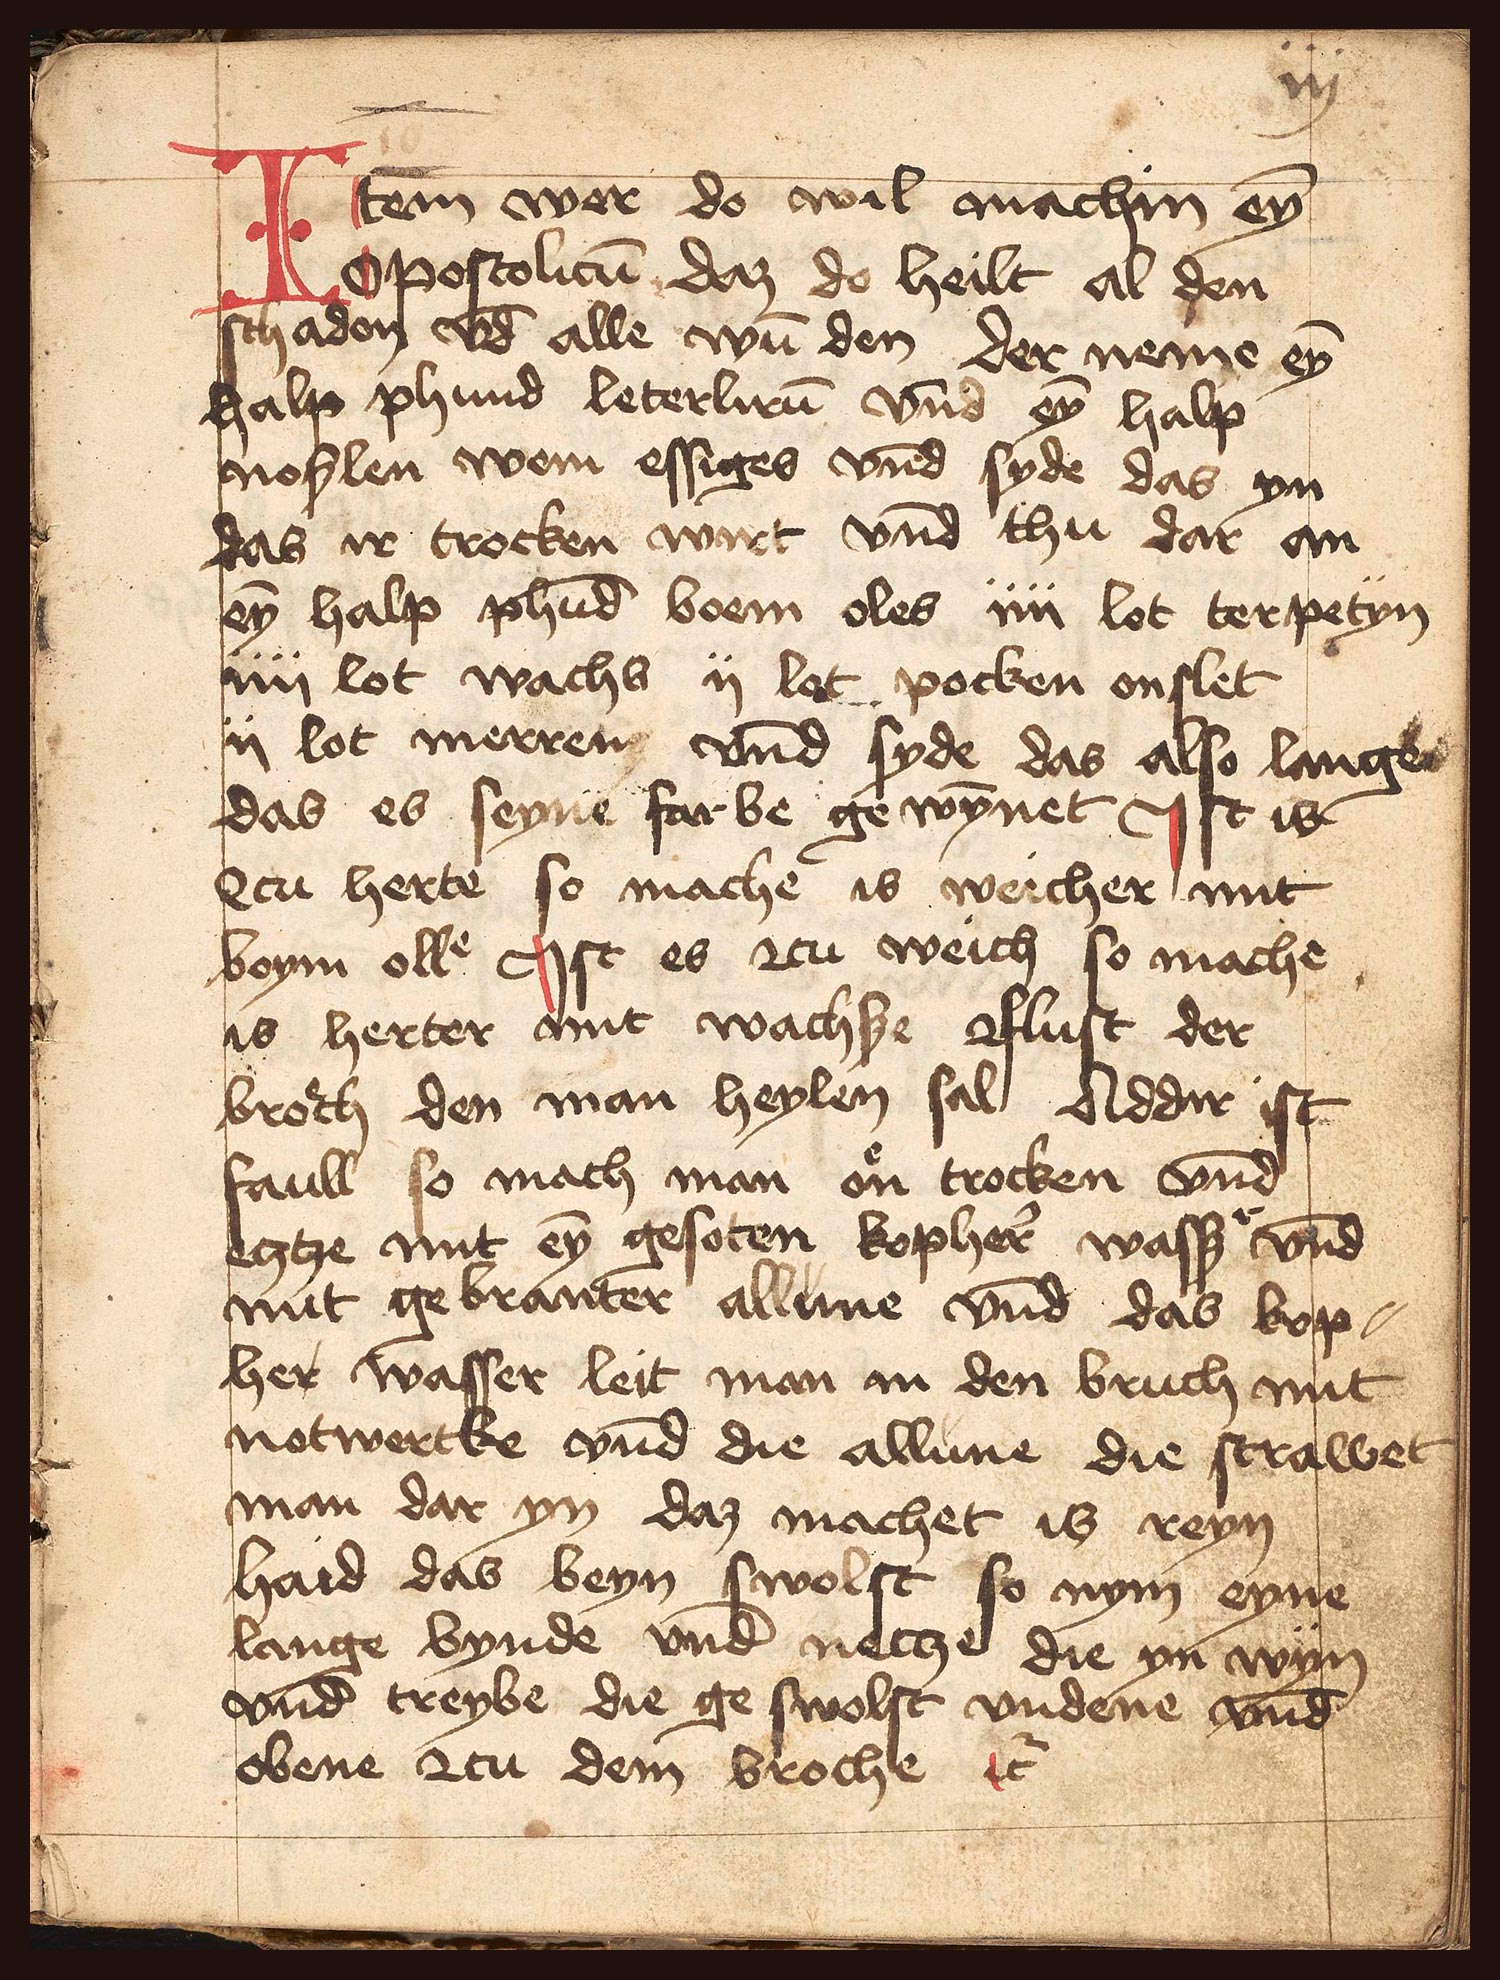 iij
Item wer do wil machin eȳ
opostolicū daz do heilt al den
schaden vn̄d alle wū den der neme eȳ
halp phund leterlirū vn̄d eȳ halp
noszlen wein essiges vn̄d syde das yn
das ir trocken wirt vn̄d thu dar an
eȳ halp phūd boem oles iiii lot terpetyn
iiii lot wachs ij lot pocken onslet
ij lot merren vn̄d syde das also lange
das es seyne farbe ge wȳnet Ist is
czu herte so mache is weicher mit
boym olle Ist es czu weich so mache
is herter mit wachsze flust der
broch den man heylen sal Addir ist
faull so mach man on trocken vn̄d
eczcze mit eȳ gesoten kopher wasszer vn̄d
mit gebranter allune vn̄d das kop
her wasser leit man in den bruch mit
notwercke vn̄d die allune die strawet
man dar yn daz machet is reyn
haid das beyn swolst so nym eyne
lange bynde vnd necze die yn wyn
vnd treybe die ge swolst vndene vnd
obene czu dem broche it̄